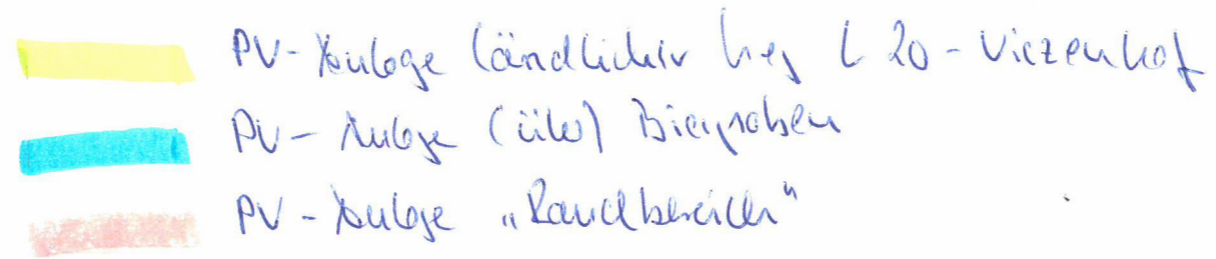 PV-Anlage ländlicher Weg L 20 - Viezenhof
PV - Anlage (über) Biergraben
PV - Anlage „Randbereich"